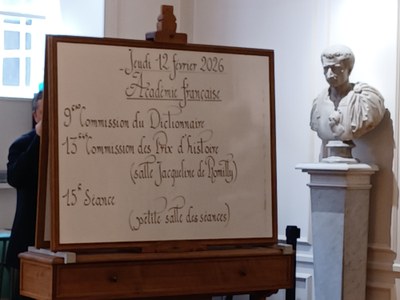 Jeudi 12 février 2026
Académie française
9h00 Commission du Dictionnaire
13h45 Commission des Prix d'histoire
(salle Jacqueline de Romilly)
15h Séance
(petite salle des séances)